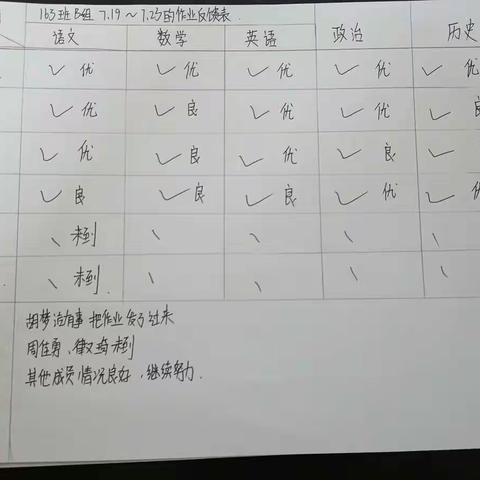 163班B组 7.19～7.25的作业反馈表.
语文 数学 英语 政治 历史
✓ 优 ✓ 优 ✓ 优 ✓ 优 ✓ 优
✓ 优 ✓ 良 ✓ 优 ✓ 优 ✓ 良
✓ 优 ✓ 良 ✓ 优 ✓ 良 ✓
✓ 良 ✓ 良 ✓ 良 ✓ 优 ✓ 优
、 未到 、 、 、 、
、 未到 、 、 、 、
胡梦 有事 把作业发了过来
周佳勇、 未到
其他成员情况良好，继续努力.